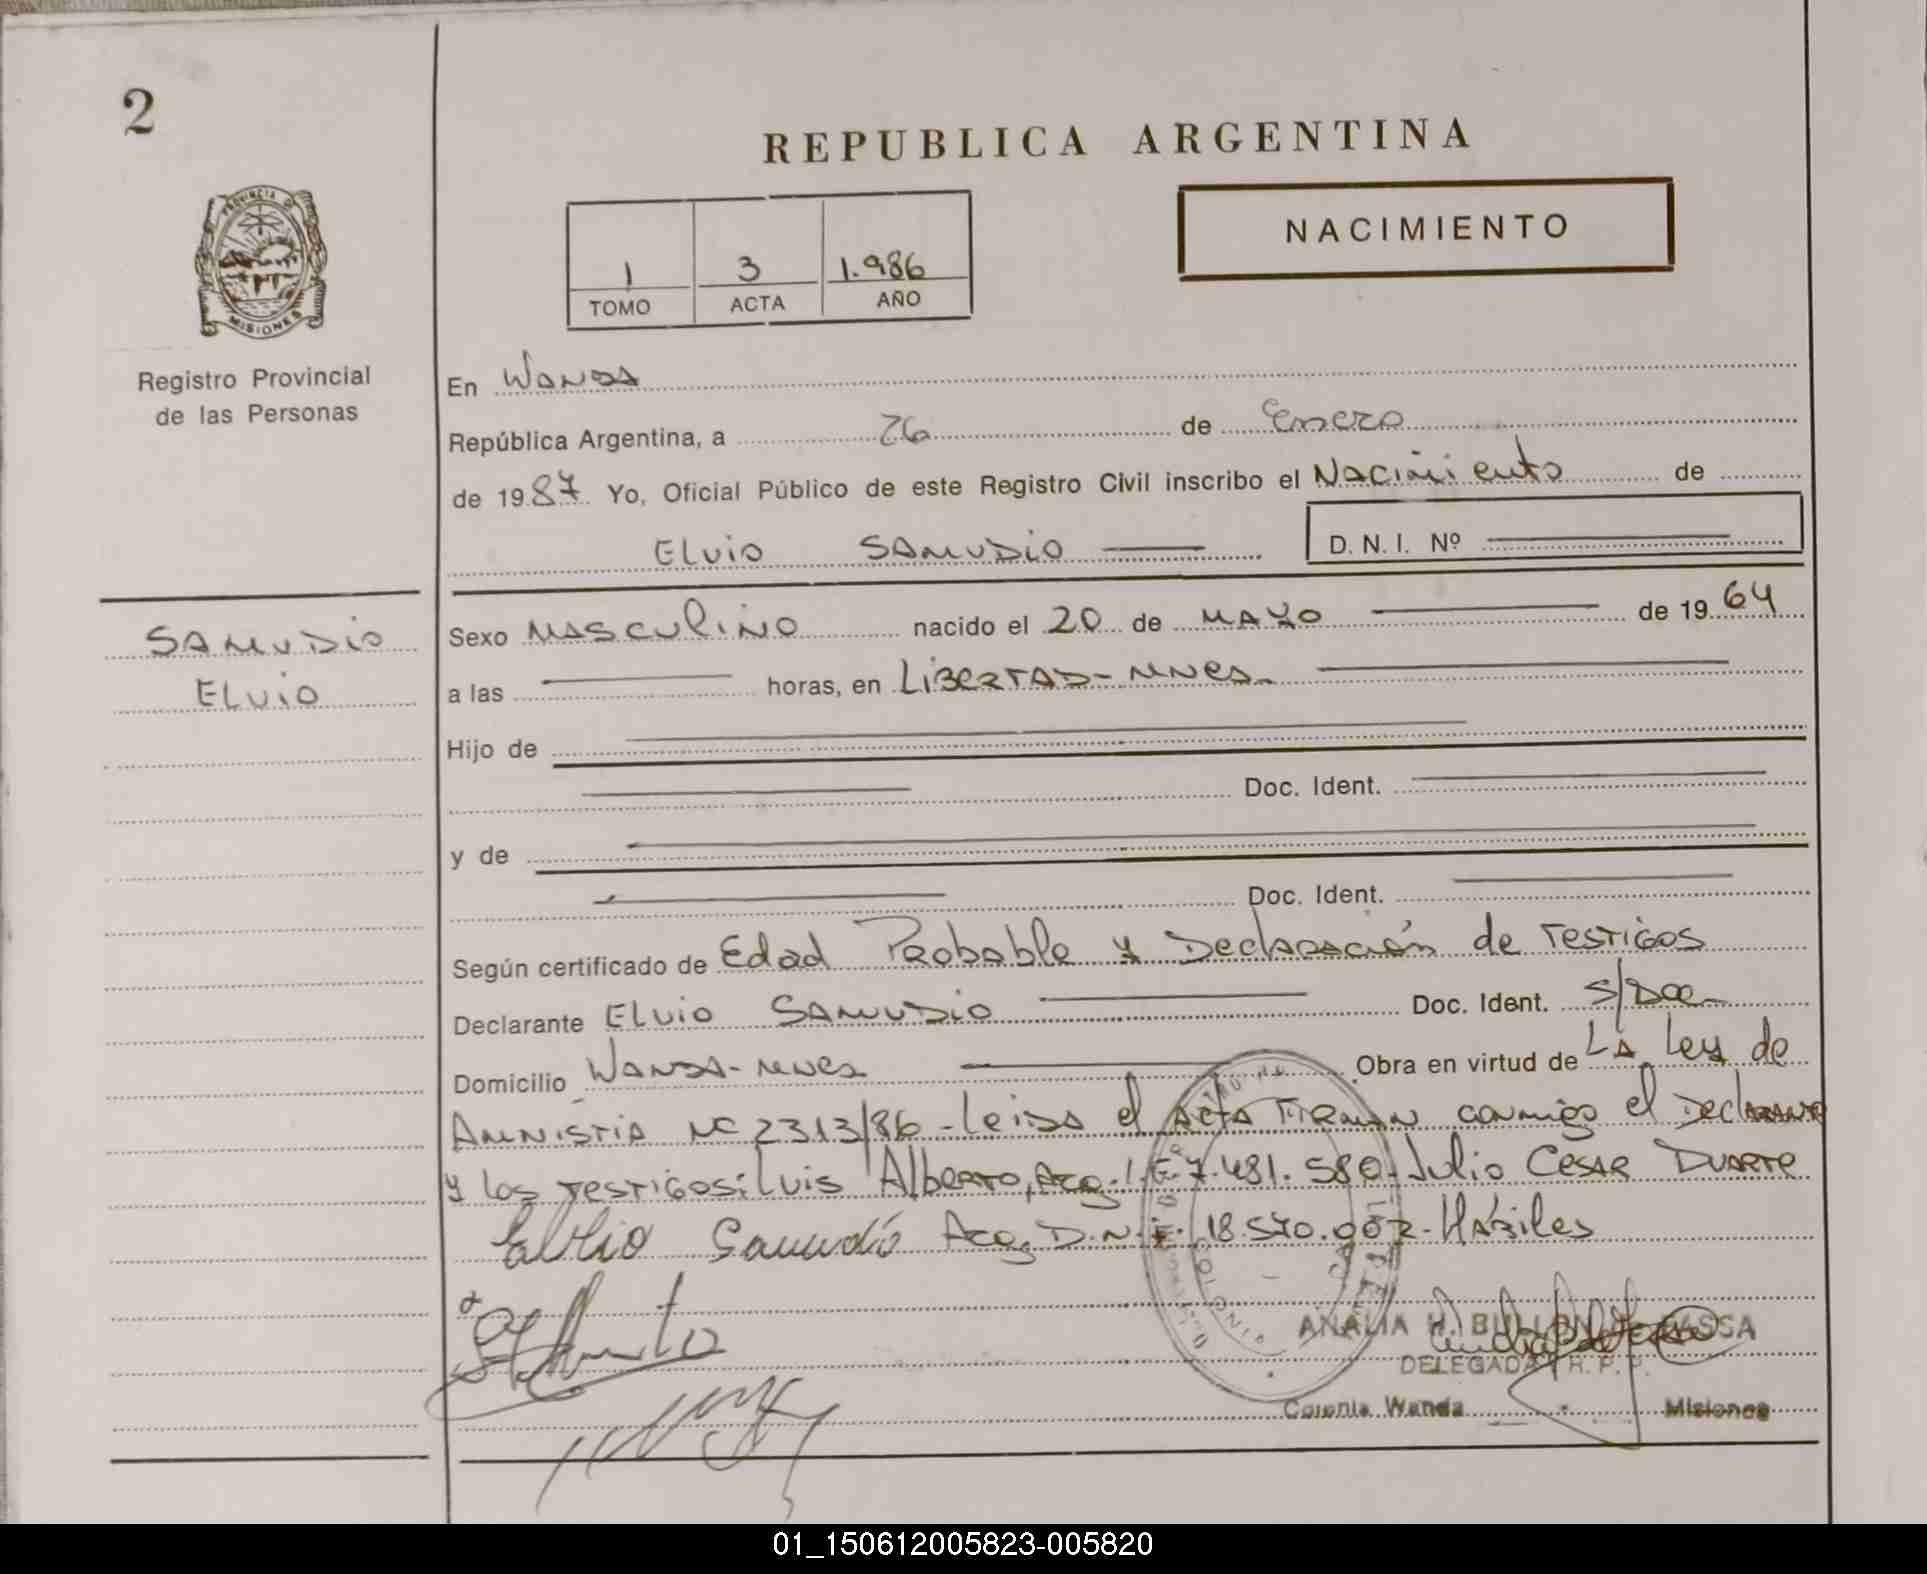 2
REPUBLICA ARGENTINA
NACIMIENTO
1 3 1.986
TOMO ACTA AÑO
PROVINCIA DE
MISIONES
Registro Provincial
de las Personas
En Wanda
República Argentina, a 26 de Enero
de 1987 Yo, Oficial Público de este Registro Civil inscribo el Nacimiento de
Elvio Samudio D. N. I. Nº
Samudio
Elvio
Sexo Masculino nacido el 20 de Mayo de 1964
a las horas, en Libertad-Mnes.
Hijo de
Doc. Ident.
y de
Doc. Ident.
Según certificado de Edad Probable y Declaración de Testigos
Declarante Elvio Samudio Doc. Ident. S/Doc.
Domicilio Wanda-Mnes Obra en virtud de La Ley de
Amnistia Nº 2313/86-Leida el Acta Firman conmigo el Declarante
y los Testigos: Luis Alberto, L.E 7.481.580-Julio Cesar Duarte
Elvio Samudio D.N.I. 18.570.007-Hábiles
ANALIA H. BULLON DE MASSA
DELEGADA R. P. P.
Colonia Wanda Misiones
01_150612005823-005820